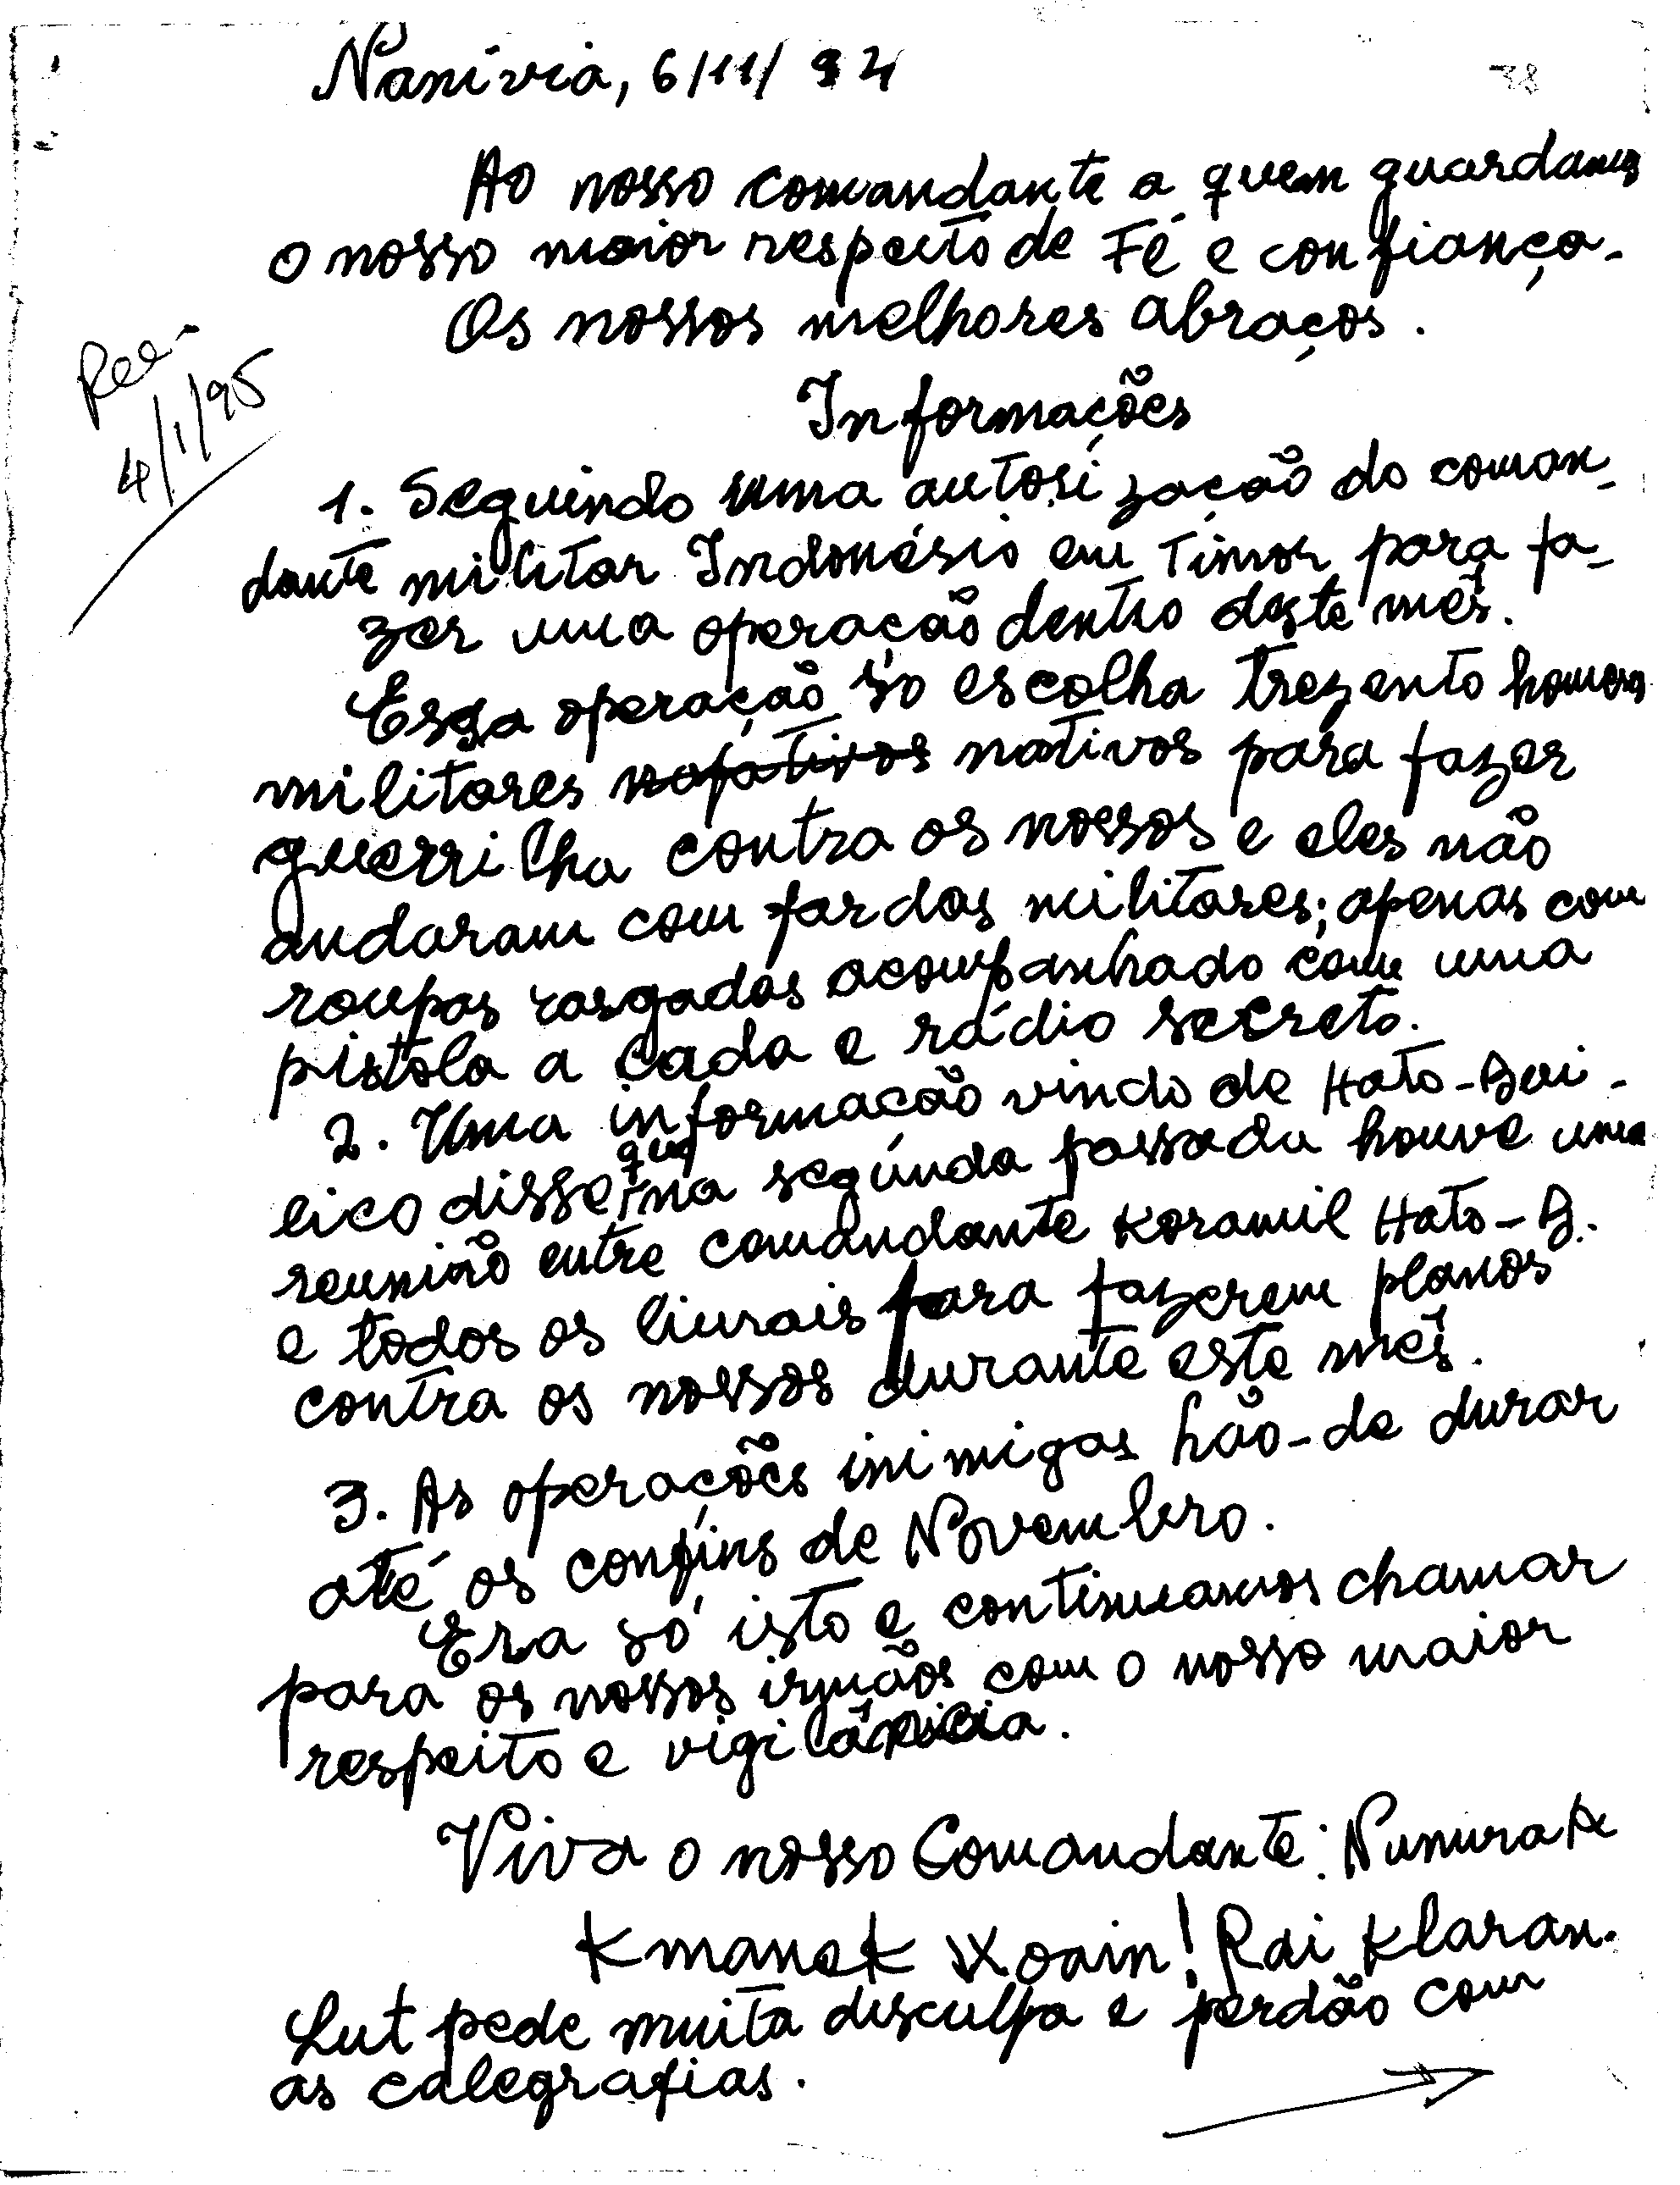 Nanívia, 6/11/94
38
Ao nosso comandante a quem guardamos
o nosso maior respeito de Fé e confiança.
Os nossos melhores abraços.
Rec-
4/1/95
Informações
1. Seguindo uma autorização do coman-
dante militar Indonésio em Timor para fa-
zer uma operação dentro deste mês.
Essa operação só escolha trezento homens
militares nativos para fazer
guerrilha contra os nossos e eles não
andaram com fardas militares; apenas com
roupas rasgadas acompanhado com uma
pistola a cada e rádio secreto.
2. Uma informação vindo de Hato-Bui-
lico disse que na segunda passada houve uma
reunião entre comandante Koramil Hato-B.
e todos os liurais para fazerem planos
contra os nossos durante este mês.
3. As operações inimigas hão-de durar
até os confins de Novembro.
Era só isto e continuamos chamar
para os nossos irmãos com o nosso maior
respeito e vigilância.
Viva o nosso Comandante: Nunurak
Kmanek Xoain! Rai Klaran.
Lut pede muita disculpa e perdão com
as calegrafias.